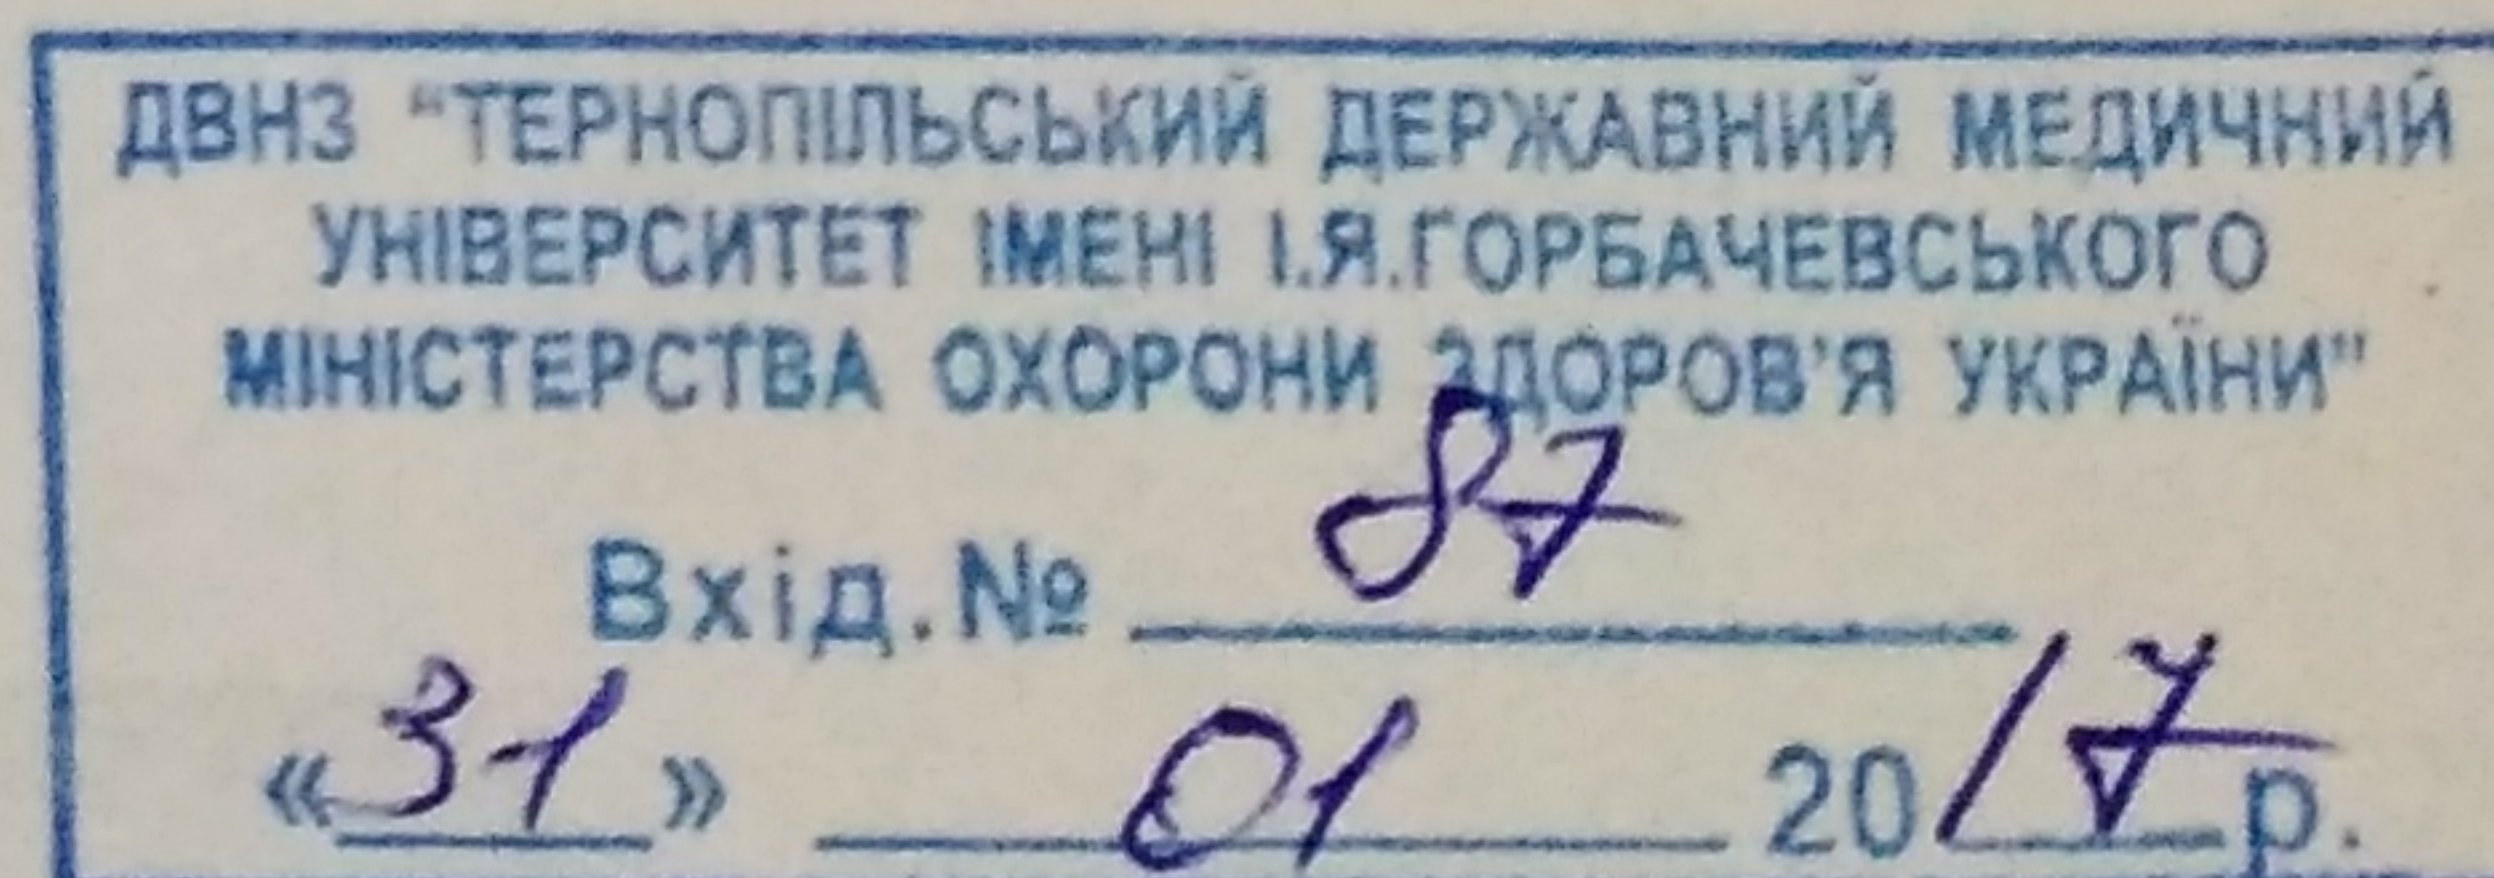 ДВНЗ "ТЕРНОПІЛЬСЬКИЙ ДЕРЖАВНИЙ МЕДИЧНИЙ
УНІВЕРСИТЕТ ІМЕНІ І.Я.ГОРБАЧЕВСЬКОГО
МІНІСТЕРСТВА ОХОРОНИ ЗДОРОВ'Я УКРАЇНИ"
Вхід.№ 87
«31» 01 2017 р.